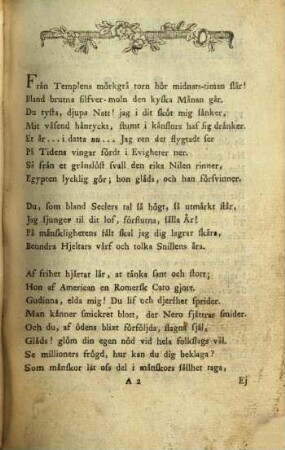 Från Templens mörkgrå torn hör midnats-timan slår!
Bland brutna silfver-moln den kyska Månan går.
Du tysta, djupa Natt! jag i dit sköt mig sänker,
Mit väsend hänryckt, stumt i känslors haf sig dränker.
Et är... i detta nu... Jag ren det flygtade ser
På Tidens vingar fördt i Evigheter ner.
Så från et gränslöst svall den rika Nilen rinner,
Egypten lycklig gör; hon gläds, och han försvinner.
Du, som bland Seclers tal så högt, så utmärkt står,
Jag sjunger til dit lof, förflutna, sälla År!
På mänsklighetens fält skal jag dig lagrar skära,
Beundra Hjeltars värf och tolka Snillens ära.
Af frihet hjärtat lär, at tänka sant och stort;
Hon af American en Romersk Cato gjort.
Gudinna, elda mig! Du lif och djerfhet sprider.
Man känner smickret blott, der Nero fjättrar smider.
Och du, af ödens blixt förföljda, slagna själ,
Gläds! glöm din egen nöd vid hela folkslags väl.
Se millioners frögd, hur kan du dig beklaga?
Som mänskor låt oss del i mänskors sällhet taga,
A 2 Ej